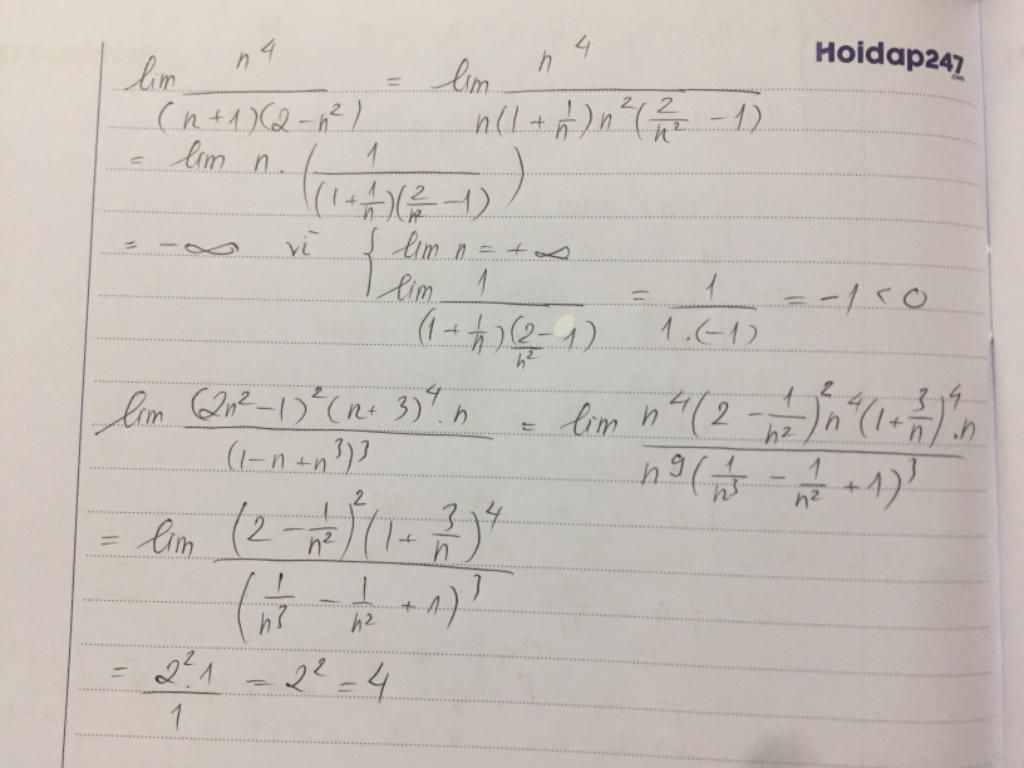 Hoidap247.com
lim n^4/((n+1)(2-n²)) = lim n^4/(n(1+1/n)n²(2/n² -1))
= lim n.(1/((1+1/n)(2/n² -1)))
= -∞ vì { lim n = +∞
lim 1/((1+1/n)(2/n² -1)) = 1/(1.(-1)) = -1 < 0
lim ((2n²-1)²(n+3)^4.n)/((1-n+n³)³) = lim (n^4(2 - 1/n²)²n^4(1+3/n)^4.n)/(n^9(1/n³ - 1/n² +1)³)
= lim ((2 - 1/n²)²(1+3/n)^4)/((1/n³ - 1/n² +1)³)
= (2².1)/1 = 2² = 4